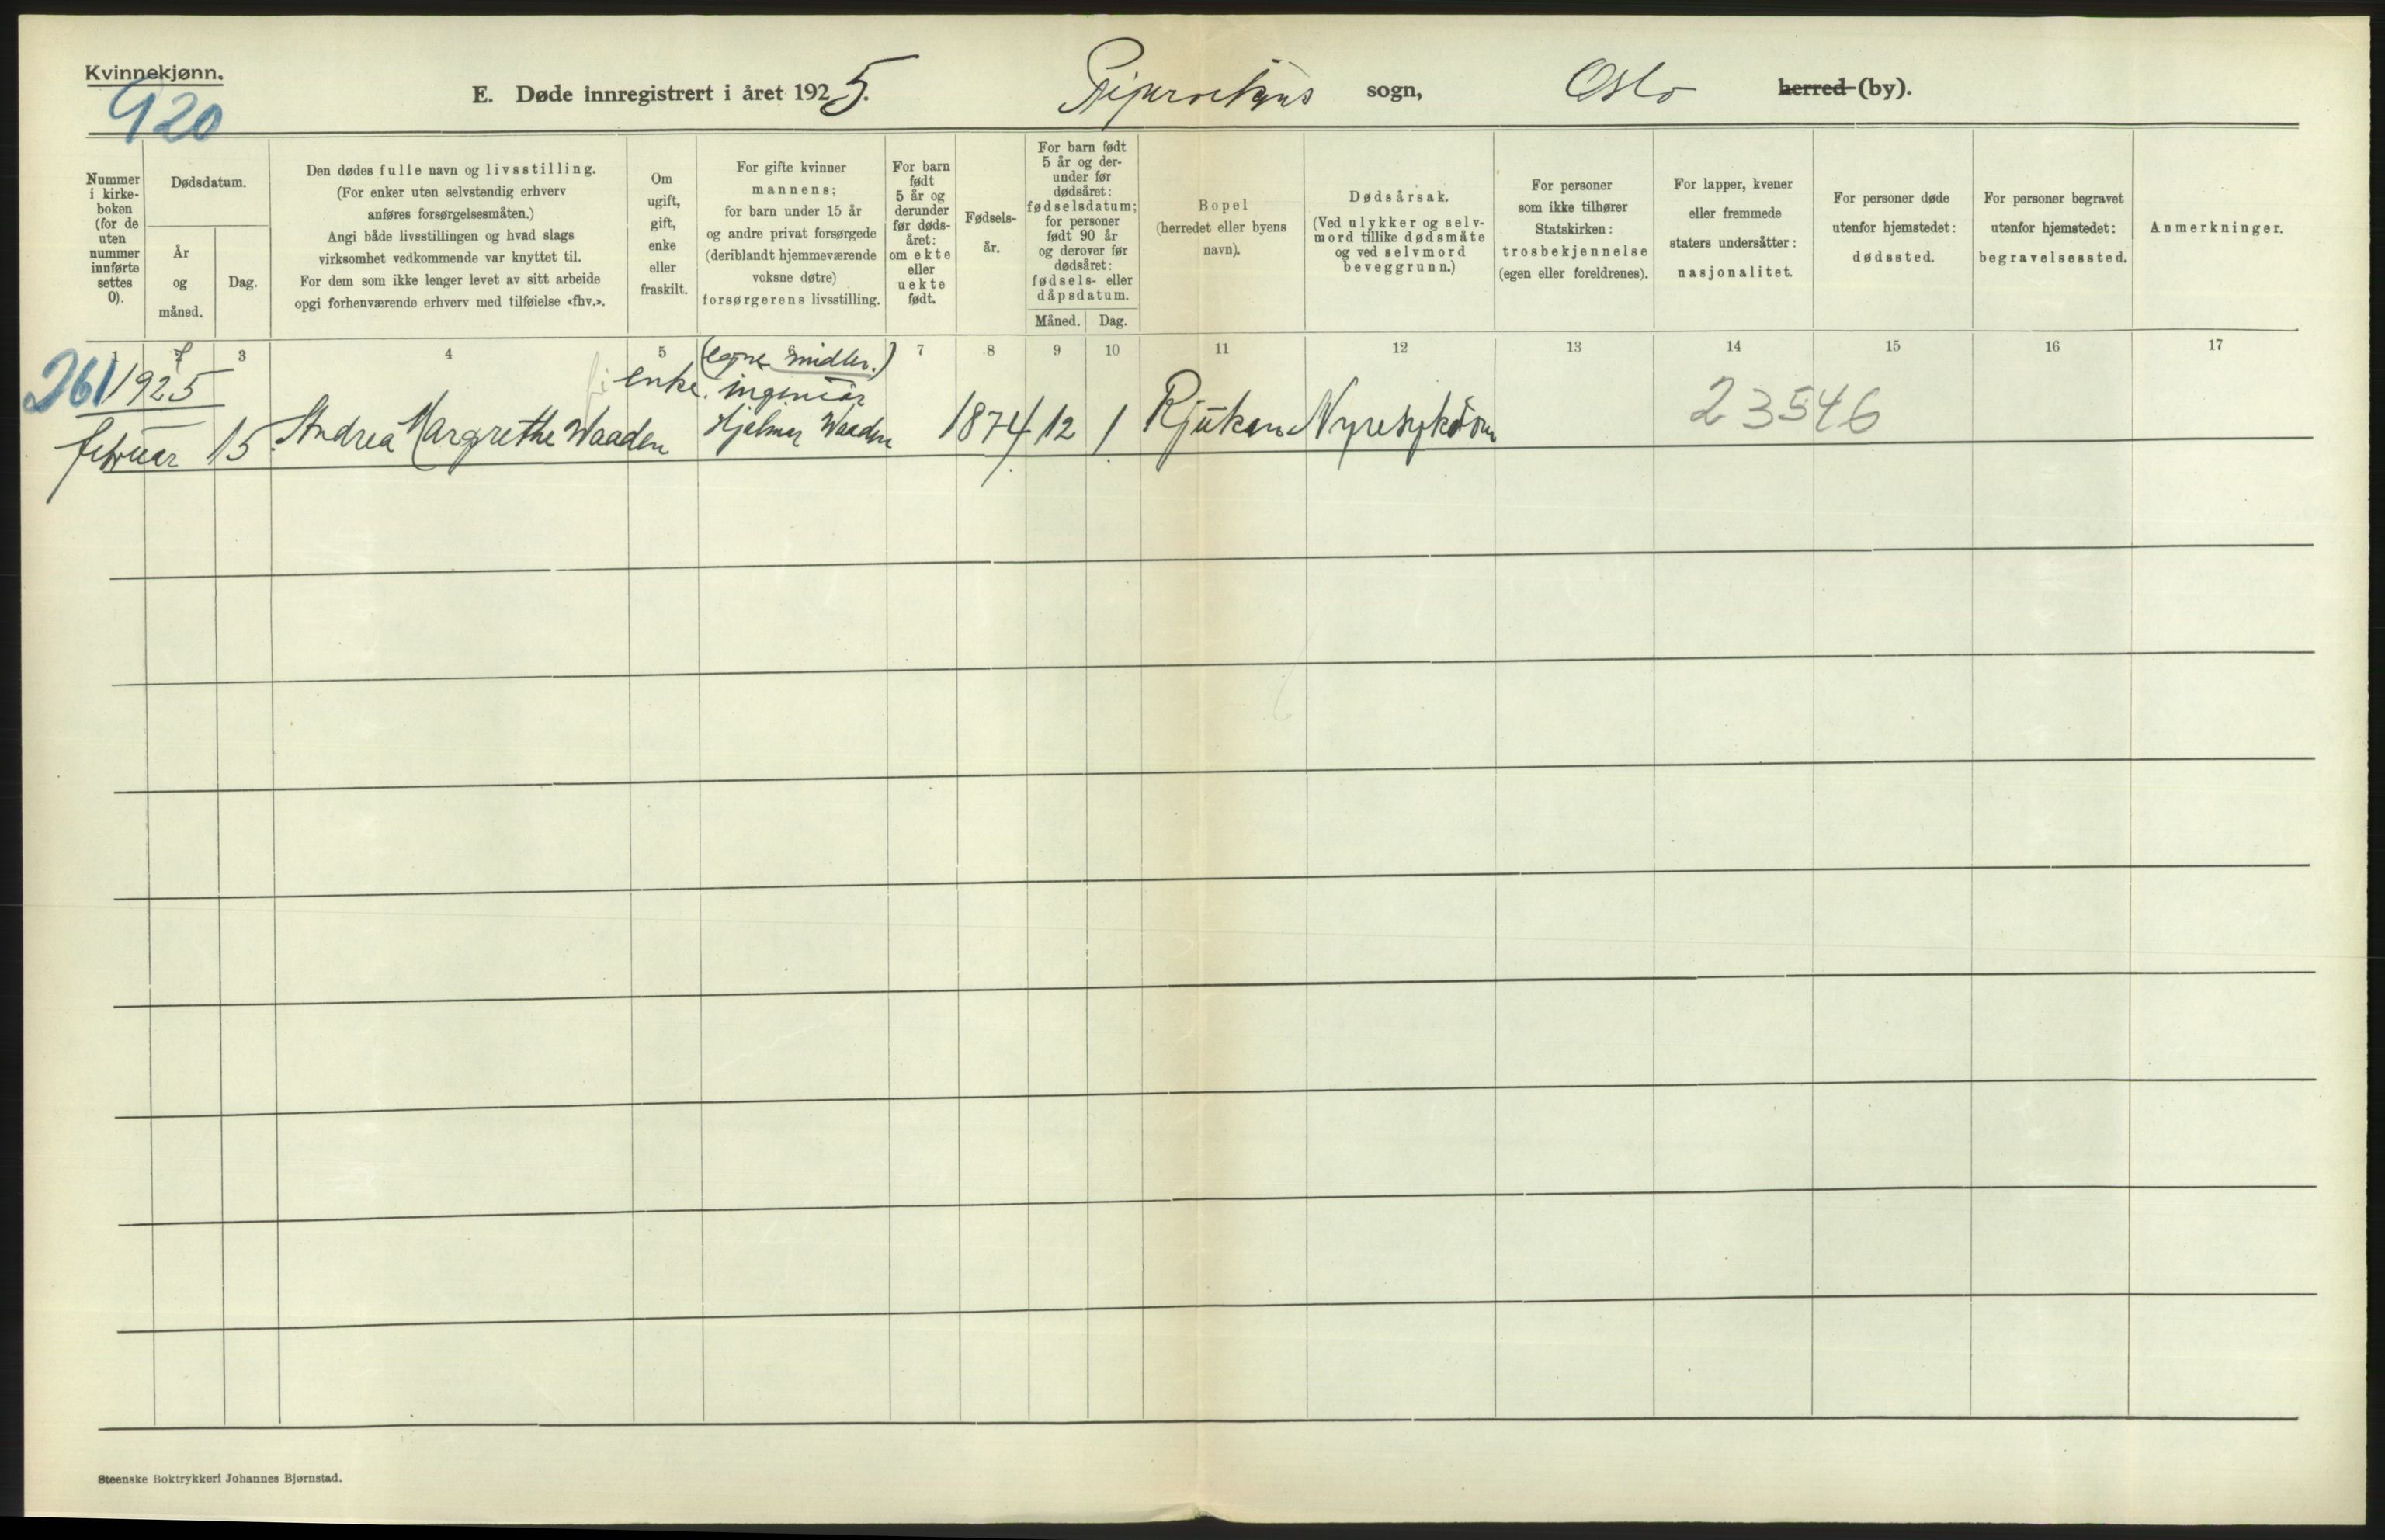 Kvinnekjønn.
920
E. Døde innregistrert i året 1925. sogn, Oslo herred (by).
Nummer i kirke- boken (for de uten nummer innførte settes 0).
Dødsdatum.
År og måned.
Dag.
Den dødes fulle navn og livsstilling.
(For enker uten selvstendig erhverv
anføres forsørgelsesmåten.)
Angi både livsstillingen og hvad slags
virksomhet vedkommende var knyttet til.
For dem som ikke lenger levet av sitt arbeide
opgi forhenværende erhverv med tilføielse «fhv.».
Om
ugift,
gift,
enke
eller
fraskilt.
For gifte kvinner
mannens;
for barn under 15 år
og andre privat forsørgede
(deriblandt hjemmeværende
voksne døtre)
forsørgerens livsstilling.
For barn
født
5 år og
derunder
før døds-
året:
om ekte
eller
uekte
født.
Fødsels-
år.
For barn født
5 år og der-
under før
dødsåret:
fødselsdatum;
for personer
født 90 år
og derover før
dødsåret:
fødsels- eller
dåpsdatum.
Måned. Dag.
Bopel
(herredet eller byens
navn).
Dødsårsak.
(Ved ulykker og selv-
mord tillike dødsmåte
og ved selvmord
beveggrunn.)
For personer
som ikke tilhører
Statskirken:
trosbekjennelse
(egen eller foreldrenes).
For lapper, kvener
eller fremmede
staters undersåtter:
nasjonalitet.
For personer døde
utenfor hjemstedet:
dødssted.
For personer begravet
utenfor hjemstedet:
begravelsessted.
Anmerkninger.
3 4 5 7 8 9 10 11 12 13 14 15 16 17
261 1925 enke. (egne midler.) ingeniør
februar 15. Andrea Margrethe Waaden Hjalmar Waaden 1874 12 1 Rjukan Nyresykdom 23546
Steenske Boktrykkeri Johannes Bjørnstad.